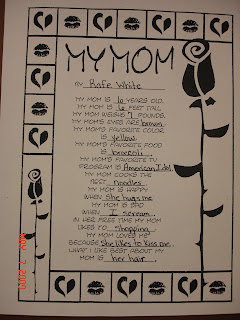 MY MOM
BY Rafe White
MY MOM IS 6 YEARS OLD.
MY MOM IS 6 FEET TALL.
MY MOM WEIGHS 7 POUNDS.
MY MOM'S EYES ARE brown.
MY MOM'S FAVORITE COLOR
IS yellow.
MY MOM'S FAVORITE FOOD
IS broccoli.
MY MOM'S FAVORITE TV
PROGRAM IS American Idol.
MY MOM COOKS THE
BEST noodles.
MY MOM IS HAPPY
WHEN she hugs me.
MY MOM IS SAD
WHEN I scream.
IN HER FREE TIME MY MOM
LIKES TO shopping.
MY MOM LOVES ME
BECAUSE She likes to kiss me.
WHAT I LIKE BEST ABOUT MY
MOM IS her hair.